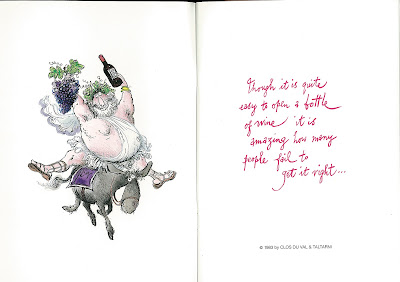 Though it is quite
easy to open a bottle
of wine it is
amazing how many
people fail to
get it right...
© 1983 by CLOS DU VAL & TALTARNI